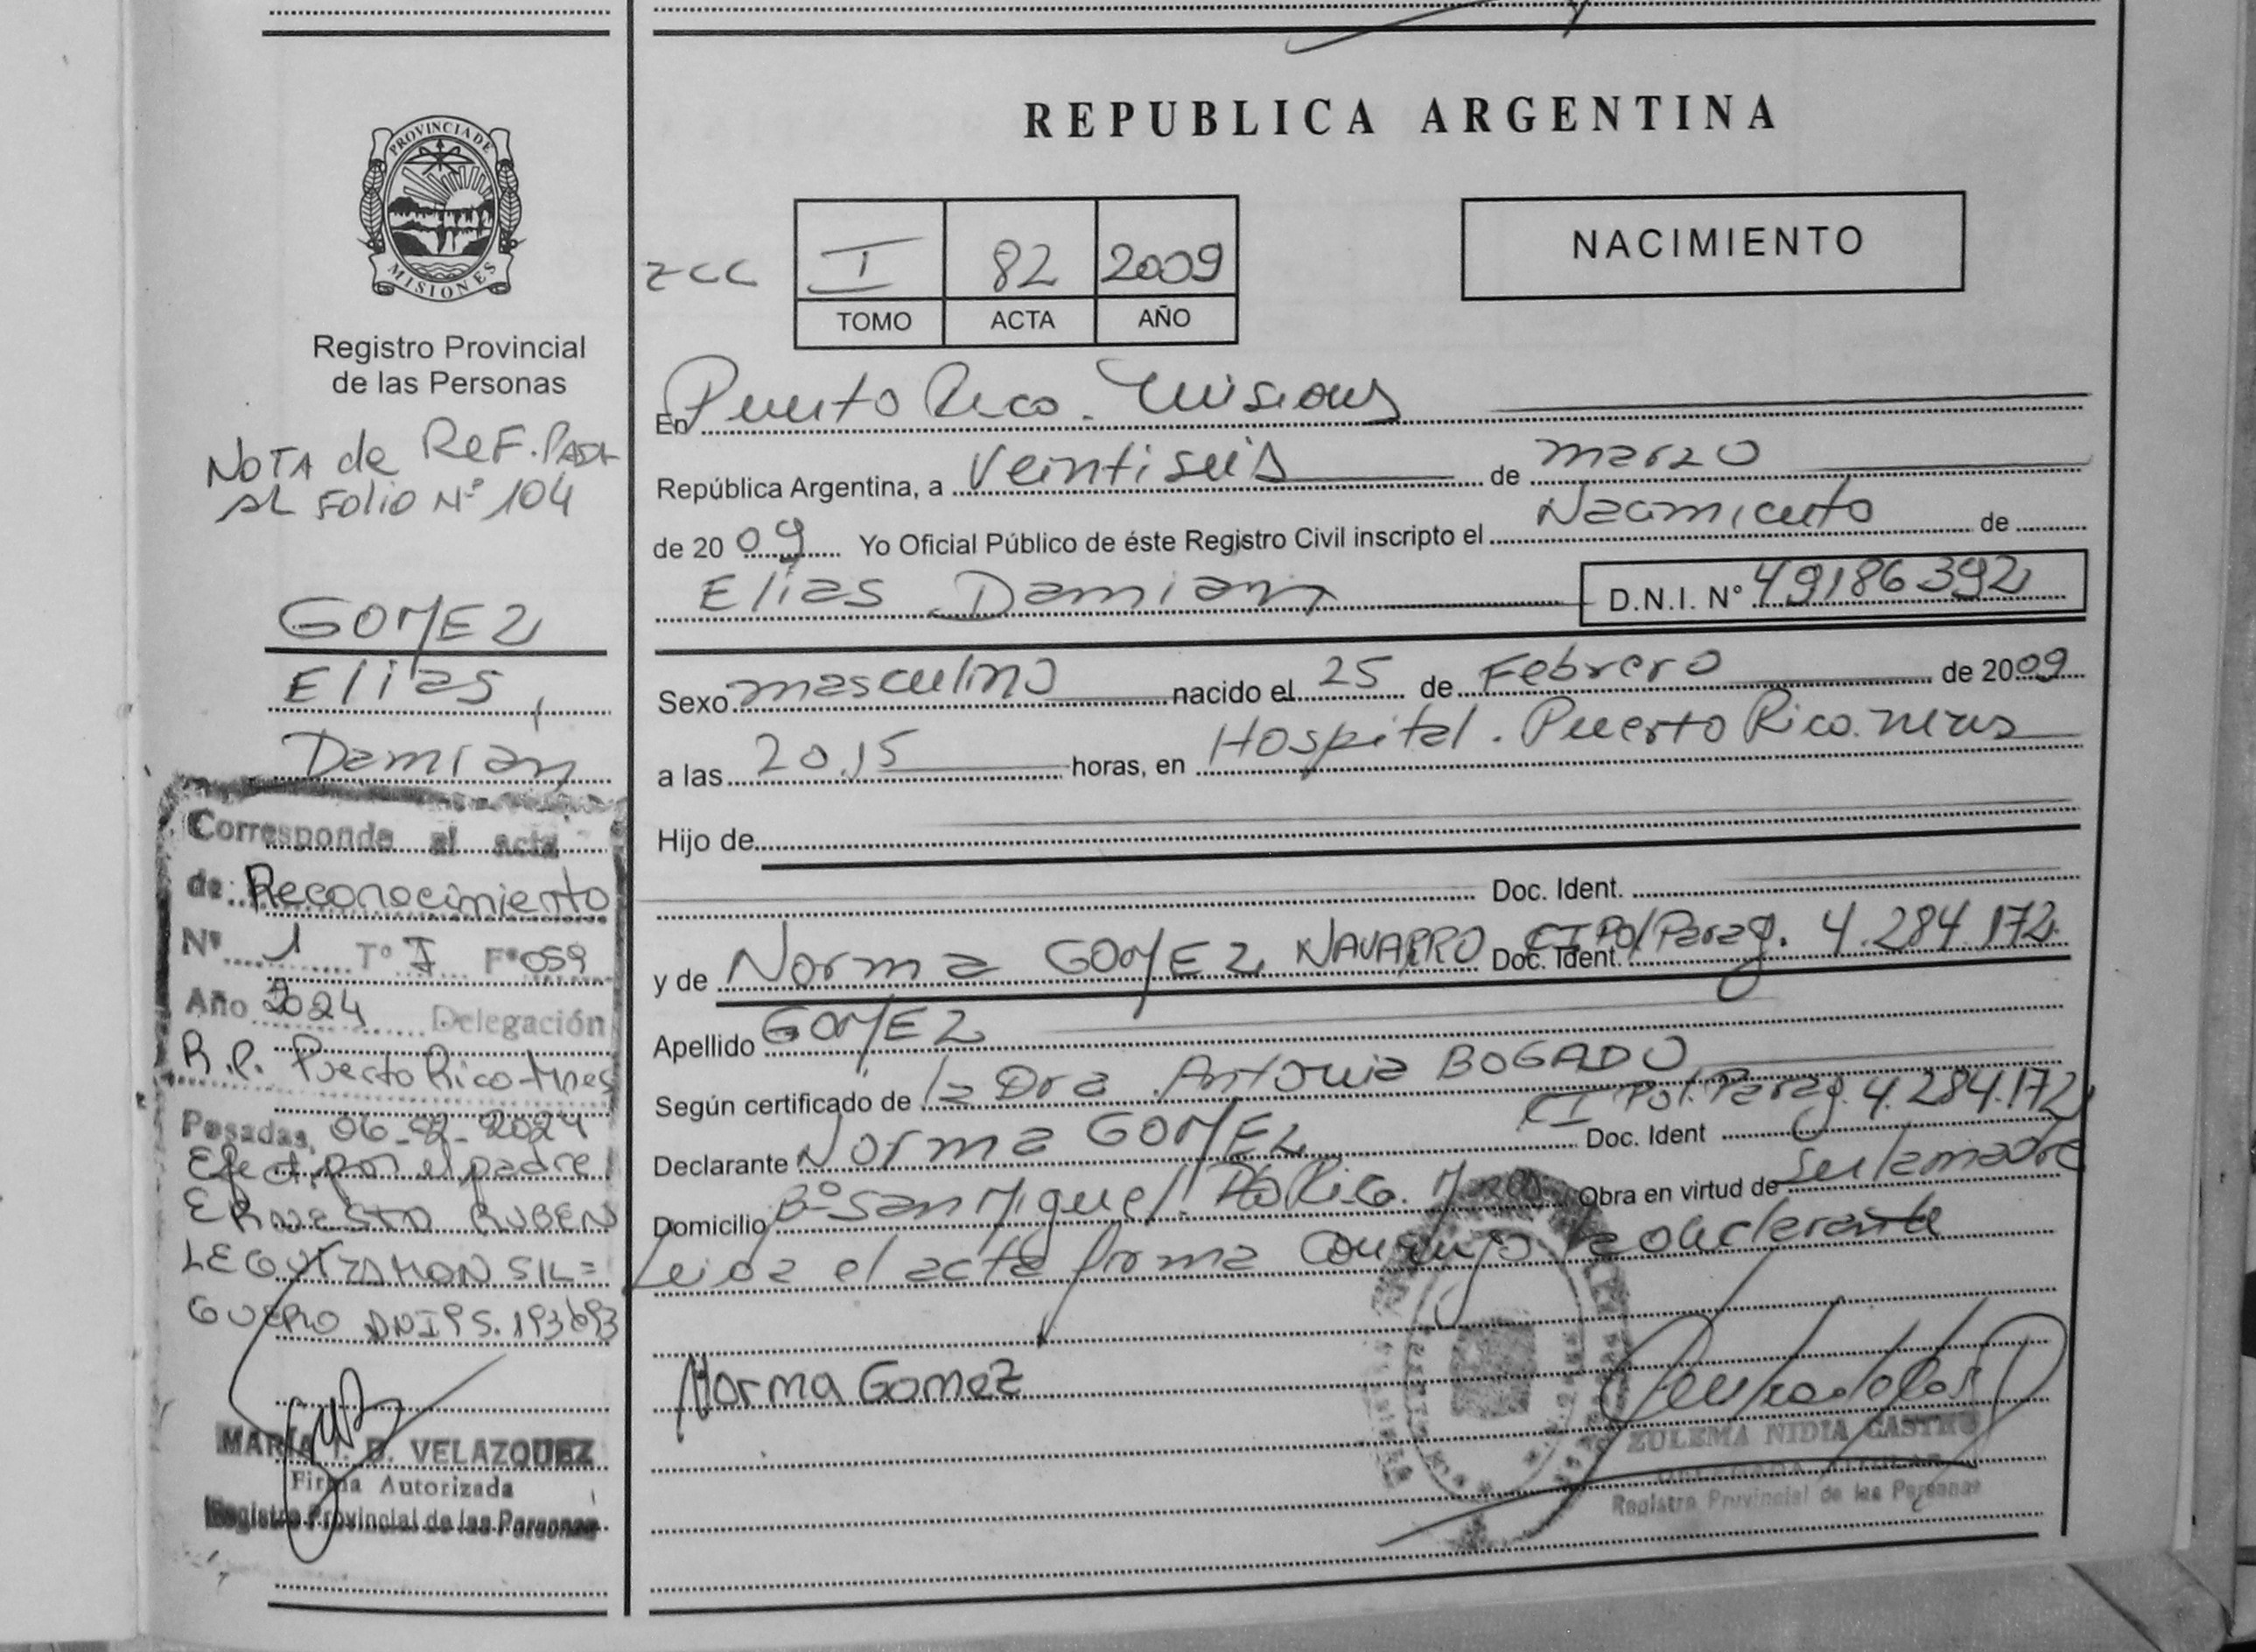 PROVINCIA DE
MISIONES
Registro Provincial
de las Personas
NOTA de ReF. PADR
AL FOLIO Nº 104
GOMEZ
Elias,
Damian
Corresponde al acta
de: Reconocimiento
Nº 1 Tº I Fº 059
Año 2024 Delegación
R.P. Puerto Rico-Mnes
Posadas, 06-02-2024
Efect. por el padre
ERNESTO RUBEN
LEGUIZAMON SIL=
GUERO DNI 95.193693
MARIA I. D. VELAZQUEZ
Firma Autorizada
Registro Provincial de las Personas
REPUBLICA ARGENTINA
ZCC I 82 2009
TOMO ACTA AÑO
NACIMIENTO
En Puerto Rico. Misiones
República Argentina, a veintiseis de marzo
de 2009 Yo Oficial Público de éste Registro Civil inscripto el Nacimiento de
Elias Damian D.N.I. Nº 49186392
Sexo masculino nacido el 25 de Febrero de 2009
a las 20,15 horas, en Hospital. Puerto Rico. Mnes
Hijo de
Doc. Ident.
y de Norma GOMEZ NAVARRO Doc. Ident. CI Pol Parag. 4.284.172
Apellido GOMEZ
Según certificado de la Dra. Antonia BOGADO
Declarante Norma GOMEZ Doc. Ident CI Pol. Parag. 4.284.172
Domicilio Bº San Miguel. Pto Rico. Mnes Obra en virtud de ser la madre
Leida el acta firma conmigo la declarante
Norma Gomez
ZULEMA NIDIA CASTRO
DELEGADA TITULAR
Registro Provincial de las Personas